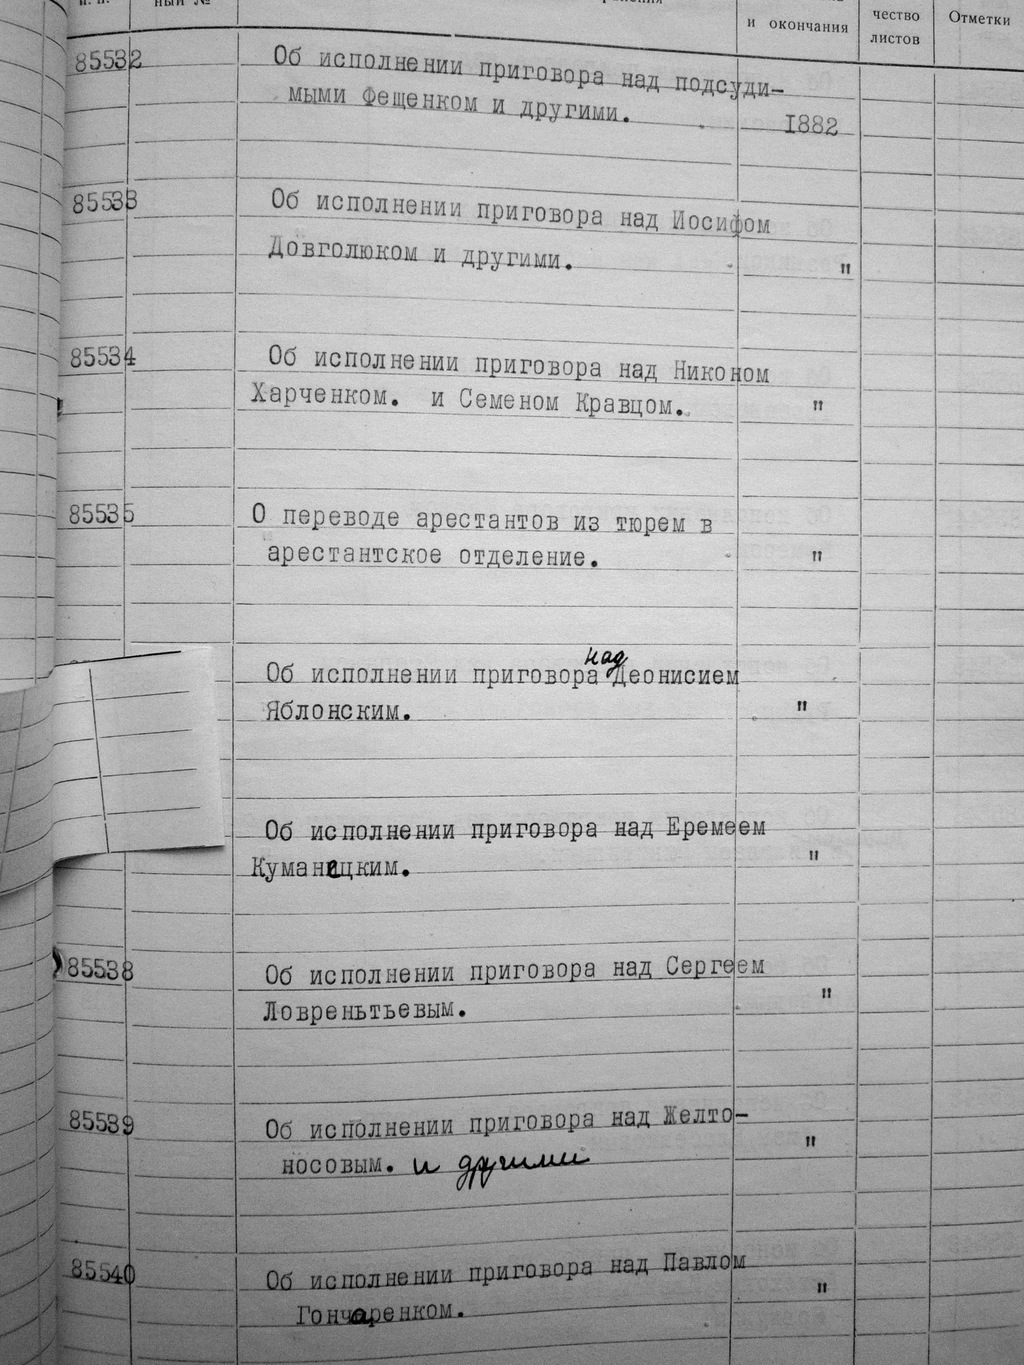 п. п. ный №
и окончания
чество листов
Отметки
85532 Об исполнении приговора над подсуди-
мыми Фещенком и другими. 1882
85533 Об исполнении приговора над Иосифом
Довголюком и другими. "
85534 Об исполнении приговора над Никоном
Харченком. и Семеном Кравцом. "
85535 О переводе арестантов из тюрем в
арестантское отделение. "
Об исполнении приговора над Деонисием
Яблонским. "
Об исполнении приговора над Еремеем
Куманицким. "
85538 Об исполнении приговора над Сергеем
Ловреньтьевым. "
85539 Об исполнении приговора над Желто-
носовым. и другими "
85540 Об исполнении приговора над Павлом
Гончаренком. "